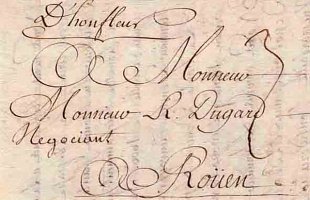 D'honfleur
A Monsieur
Monsieur R. Dugard
Negociant
A Roüen